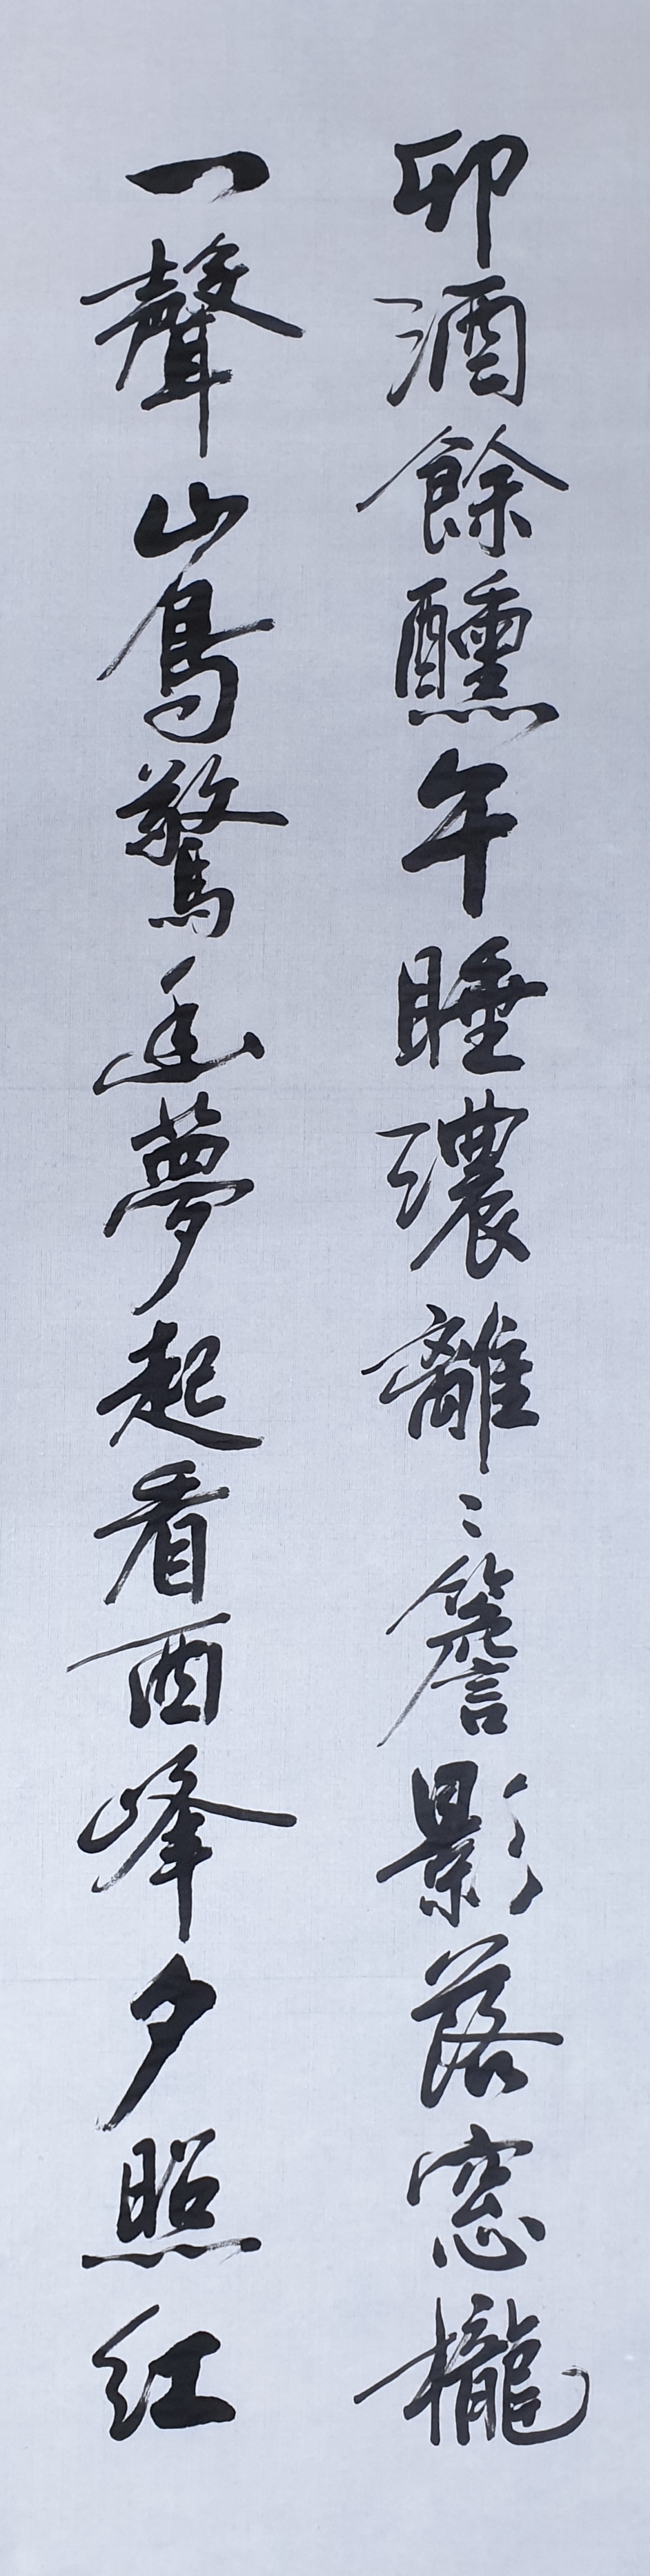 卯酒餘醺午睡濃離〻簷影落窓櫳
一聲山鳥驚幽夢起看西峰夕照紅